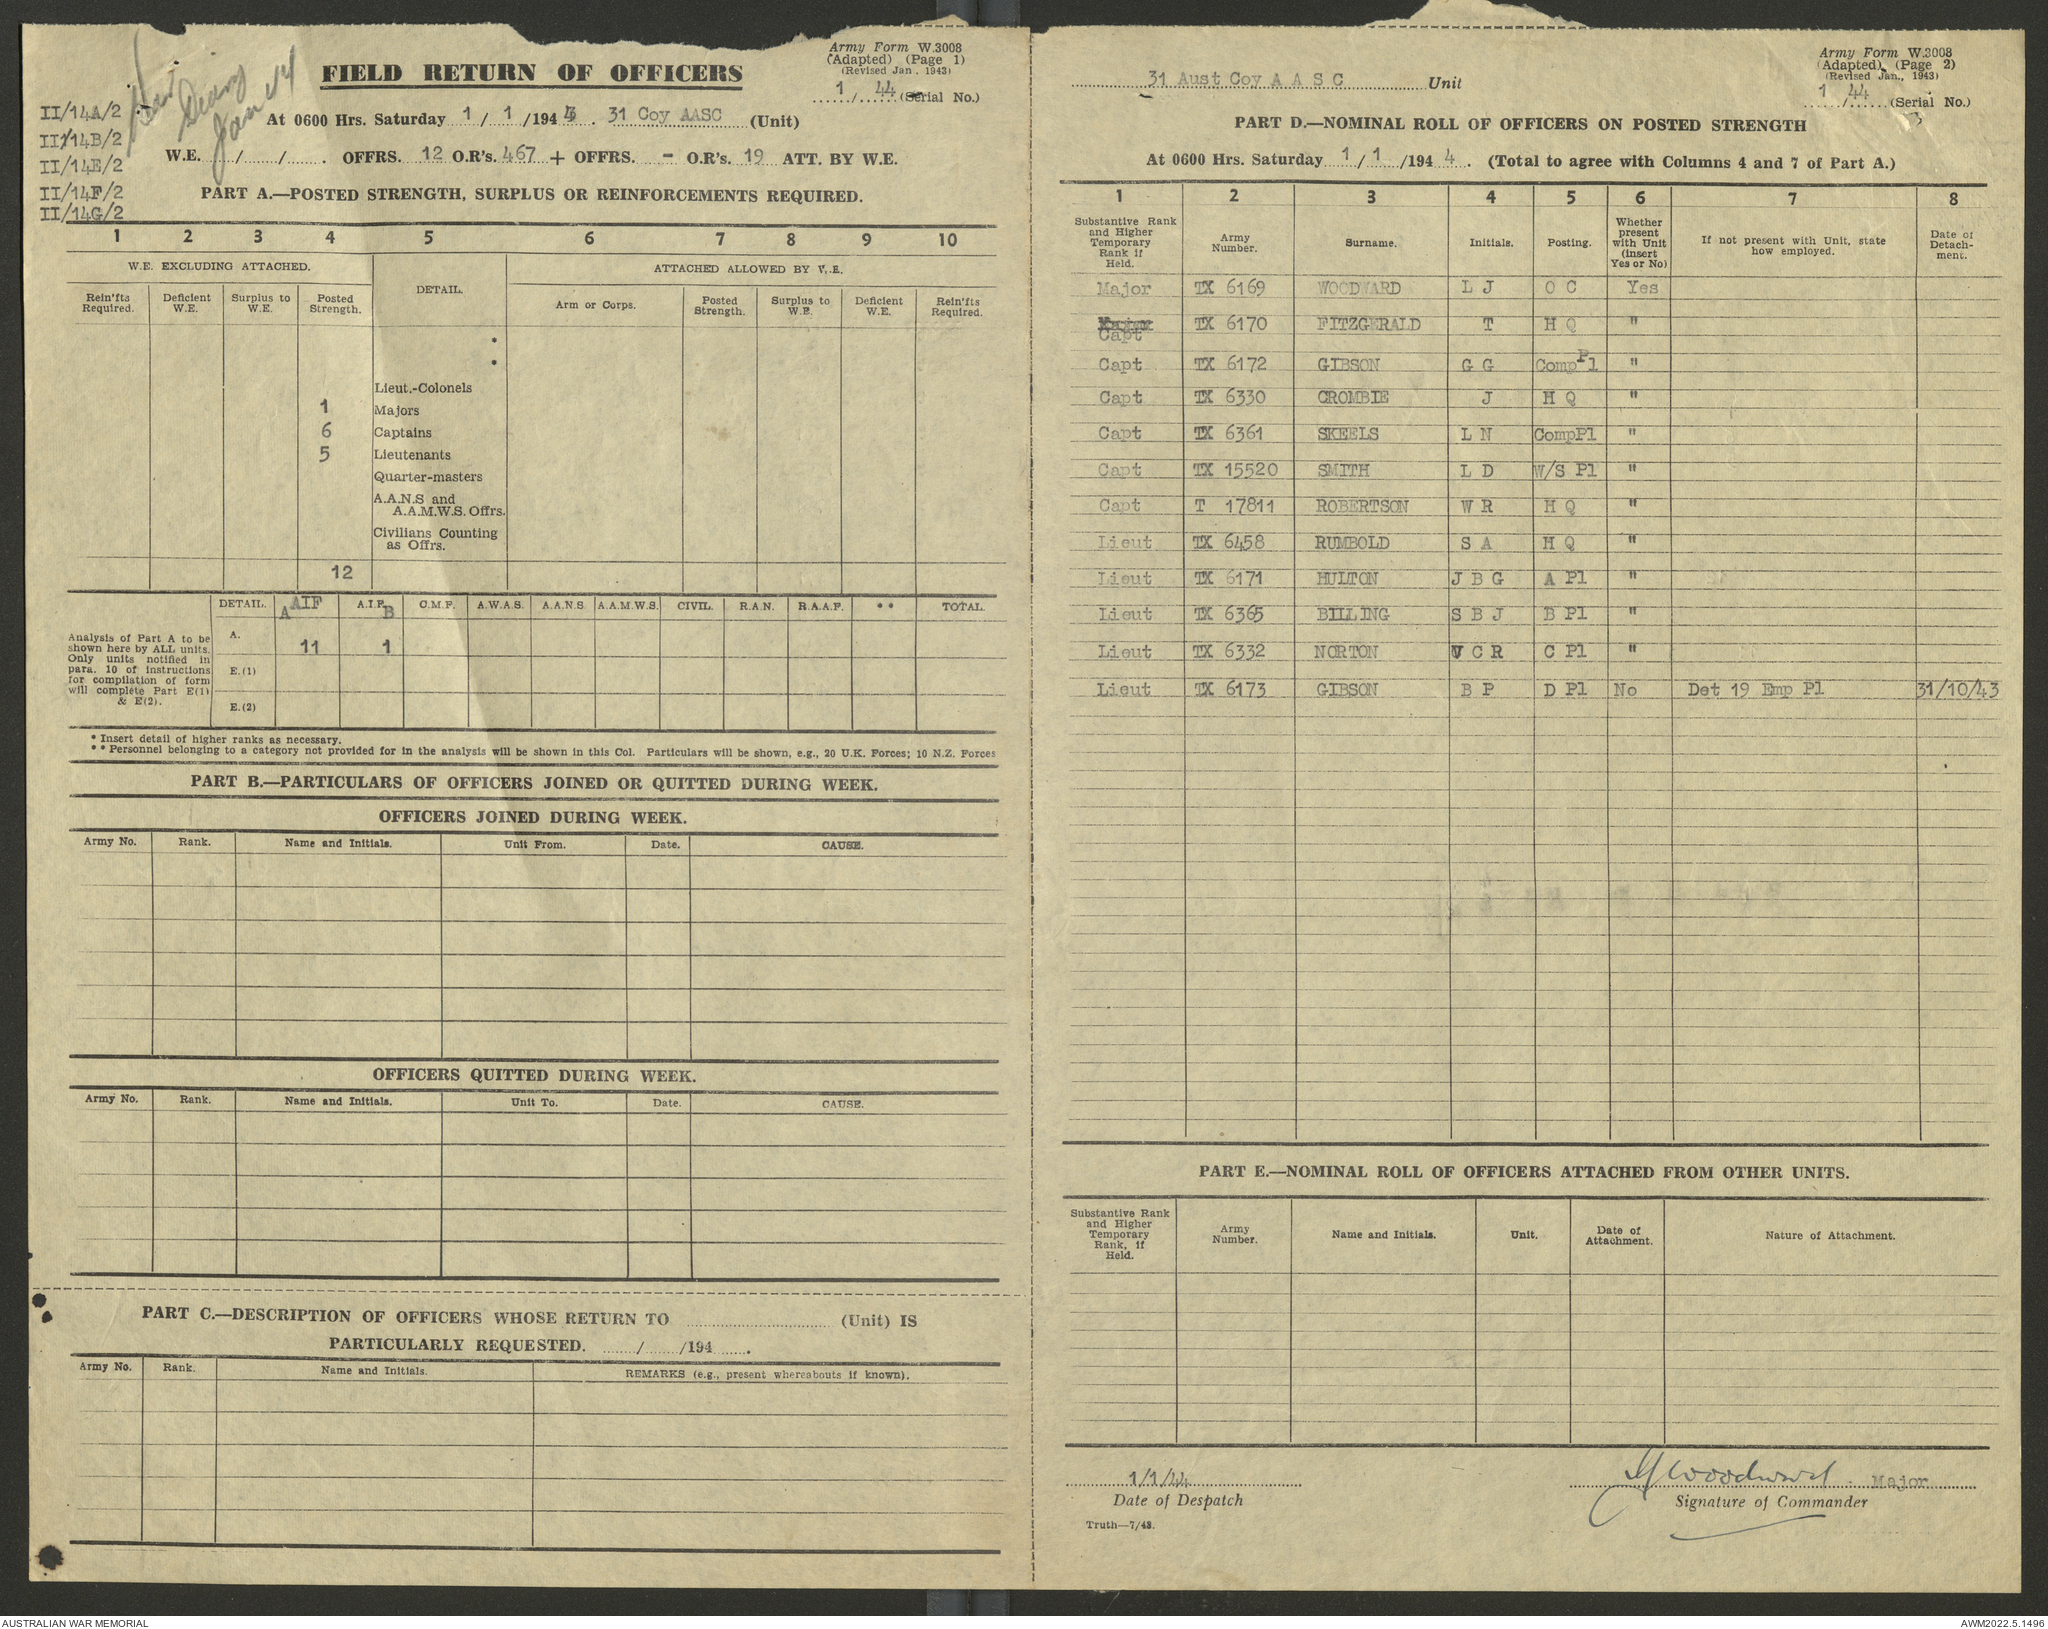 War
Diary
Jan 44
II/14A/2
II/14B/2
II/14E/2
II/14F/2
II/14G/2
FIELD RETURN OF OFFICERS
Army Form W.3008
(Adapted) (Page 1)
(Revised Jan. 1943)
1 / 44 (Serial No.)
At 0600 Hrs. Saturday 1 / 1 /194 4 . 31 Coy AASC (Unit)
W.E. / / . OFFRS. 12 O.R's. 467 + OFFRS. - O.R's. 19 ATT. BY W.E.
PART A.—POSTED STRENGTH, SURPLUS OR REINFORCEMENTS REQUIRED.
1 2 3 4 5 6 7 8 9 10
W.E. EXCLUDING ATTACHED. DETAIL. ATTACHED ALLOWED BY W.E.
Rein'fts Required. Deficient W.E. Surplus to W.E. Posted Strength. Arm or Corps. Posted Strength. Surplus to W.E. Deficient W.E. Rein'fts Required.
*
*
Lieut.-Colonels
1 Majors
6 Captains
5 Lieutenants
Quarter-masters
A.A.N.S and
A.A.M.W.S. Offrs.
Civilians Counting
as Offrs.
12
DETAIL. A AIF A.I.F. B C.M.F. A.W.A.S. A.A.N.S. A.A.M.W.S. CIVIL. R.A.N. R.A.A.F. ** TOTAL.
Analysis of Part A to be
shown here by ALL units.
Only units notified in
para. 10 of instructions
for compilation of form
will complete Part E(1)
& E(2).
A. 11 1
E.(1)
E.(2)
* Insert detail of higher ranks as necessary.
** Personnel belonging to a category not provided for in the analysis will be shown in this Col. Particulars will be shown, e.g., 20 U.K. Forces; 10 N.Z. Forces
PART B.—PARTICULARS OF OFFICERS JOINED OR QUITTED DURING WEEK.
OFFICERS JOINED DURING WEEK.
Army No. Rank. Name and Initials. Unit From. Date. CAUSE.
OFFICERS QUITTED DURING WEEK.
Army No. Rank. Name and Initials. Unit To. Date. CAUSE.
PART C.—DESCRIPTION OF OFFICERS WHOSE RETURN TO (Unit) IS
PARTICULARLY REQUESTED. / /194 .
Army No. Rank. Name and Initials. REMARKS (e.g., present whereabouts if known).
31 Aust Coy A A S C Unit
Army Form W.3008
(Adapted) (Page 2)
(Revised Jan., 1943)
1 / 44 (Serial No.)
PART D.—NOMINAL ROLL OF OFFICERS ON POSTED STRENGTH
At 0600 Hrs. Saturday 1 / 1 /194 4 . (Total to agree with Columns 4 and 7 of Part A.)
1 2 3 4 5 6 7 8
Substantive Rank and Higher Temporary Rank if Held. Army Number. Surname. Initials. Posting. Whether present with Unit (insert Yes or No) If not present with Unit, state how employed. Date of Detach-ment.
Major TX 6169 WOODWARD L J O C Yes
Capt TX 6170 FITZGERALD T H Q "
Capt TX 6172 GIBSON G G Comp Pl "
Capt TX 6330 CROMBIE J H Q "
Capt TX 6361 SKEELS L N CompPl "
Capt TX 15520 SMITH L D W/S Pl "
Capt T 17811 ROBERTSON W R H Q "
Lieut TX 6458 RUMBOLD S A H Q "
Lieut TX 6171 HULTON J B G A Pl "
Lieut TX 6365 BILLING S B J B Pl "
Lieut TX 6332 NORTON V C R C Pl "
Lieut TX 6173 GIBSON B P D Pl No Det 19 Emp Pl 31/10/43
PART E.—NOMINAL ROLL OF OFFICERS ATTACHED FROM OTHER UNITS.
Substantive Rank and Higher Temporary Rank, if Held. Army Number. Name and Initials. Unit. Date of Attachment. Nature of Attachment.
1/1/44
Date of Despatch
LJ Woodward Major
Signature of Commander
Truth—7/43.
AUSTRALIAN WAR MEMORIAL
AWM2022.5.1496